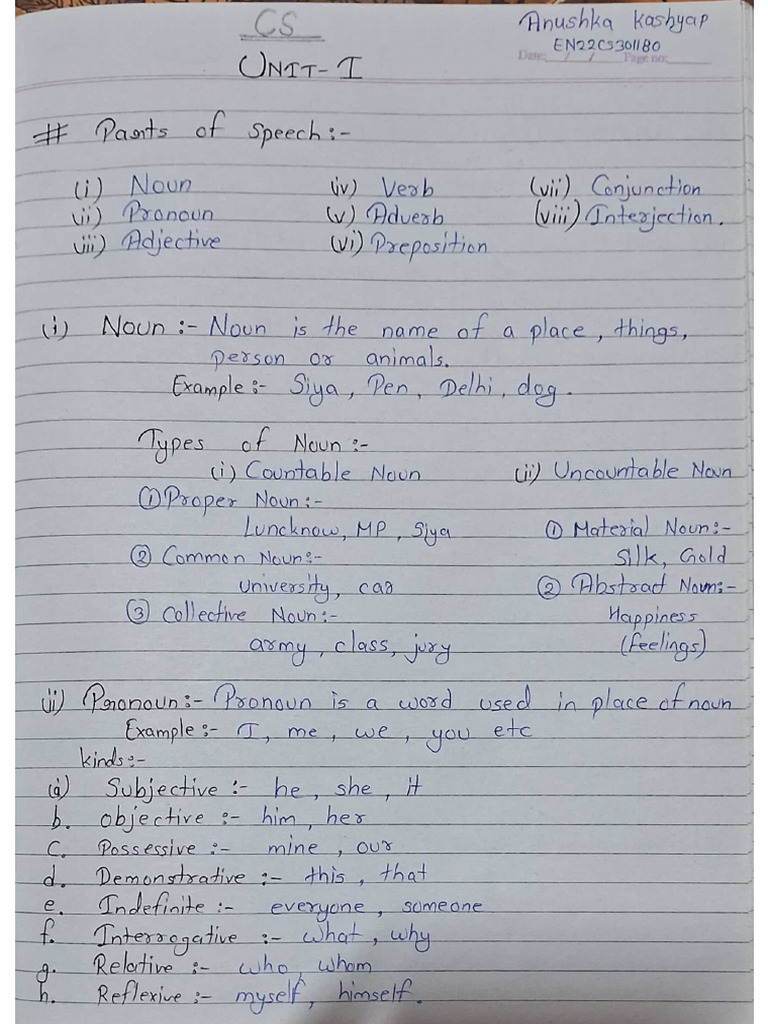 CS
Anushka Kashyap
EN22CS301180
Date: / / Page no:
UNIT-I
# Parts of Speech:-
(i) Noun (iv) Verb (vii) Conjunction
(ii) Pronoun (v) Adverb (viii) Interjection.
(iii) Adjective (vi) Preposition
(i) Noun :- Noun is the name of a place, things,
person or animals.
Example :- Siya, Pen, Delhi, dog.
Types of Noun :-
(i) Countable Noun (ii) Uncountable Noun
① Proper Noun :-
Luncknow, MP, Siya ① Material Noun:-
② Common Noun:- Silk, Gold
University, car ② Abstract Noun:-
③ Collective Noun :- Happiness
army, class, jury (feelings)
(ii) Pronoun:- Pronoun is a word used in place of noun
Example :- I, me, we, you etc
kinds:-
(a) Subjective :- he, she, it
b. objective :- him, her
C. Possessive :- mine, our
d. Demonstrative :- this, that
e. Indefinite :- everyone, someone
f. Interrogative :- what, why
g. Relative :- who, whom
h. Reflexive :- myself, himself.